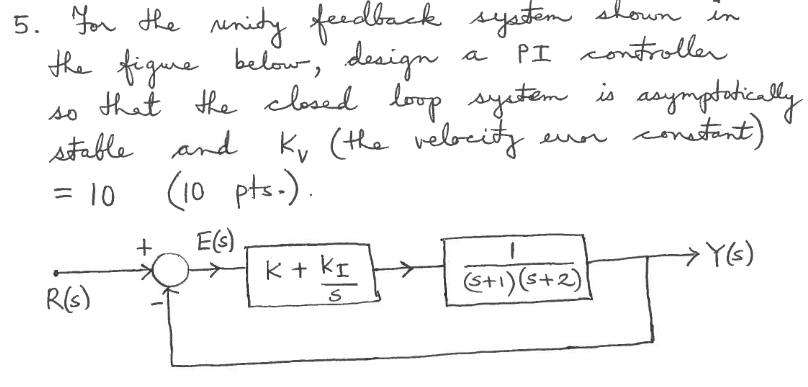 5. For the unity feedback system shown in
the figure below, design a PI controller
so that the closed loop system is asymptotically
stable and Kv (the velocity error constant)
= 10 (10 pts.).
+ E(s)
K + KI/s
1/((s+1)(s+2))
Y(s)
R(s)
-